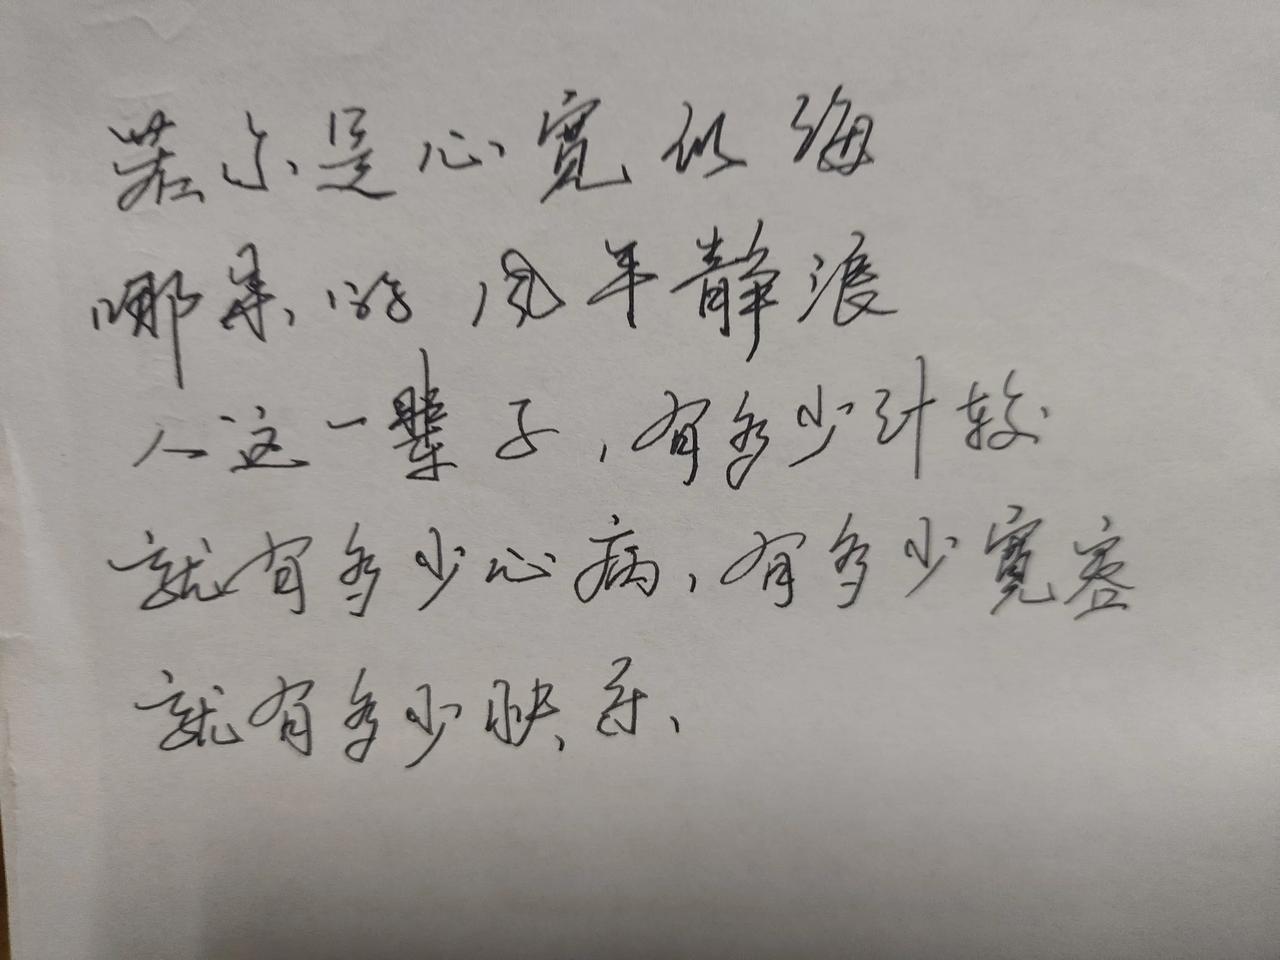 若不是心宽似海
哪来的风平静浪
人这一辈子,有多少计较
就有多少心病,有多少宽容
就有多少快乐、